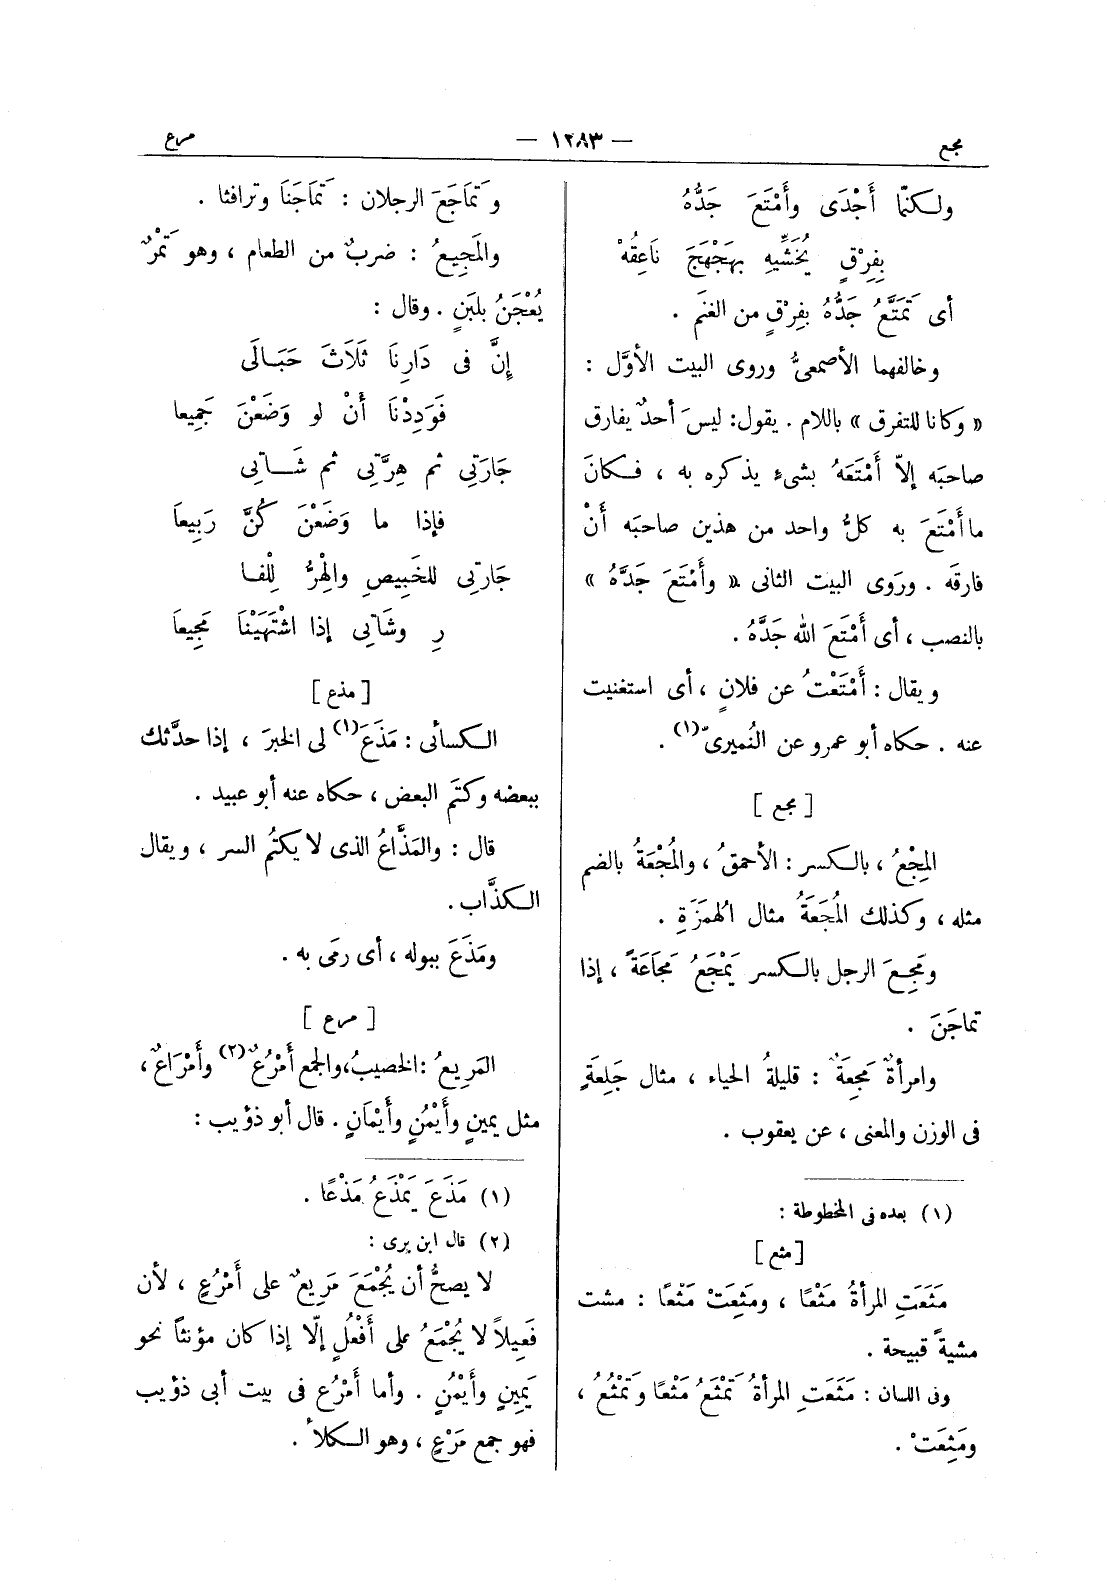 مجع
— ١٢٨٣ —
مرع
ولكنّما أَجْدَى وأَمْتَعَ جَدُّهُ
بِفِرْقٍ يُخَشِّيهِ بِهَجْهَجَ نَاعِقُهْ
أى تَمَتَّعُ جَدُّهُ بفِرْقٍ من الغنَم .
وخالفهما الأصمعىُّ وروى البيت الأوَّل :
« وكانا للتفرق » باللام . يقول: ليسَ أحدٌ يفارق
صاحبَه إلاّ أَمْتَعَهُ بشىءٍ يذكره به ، فكانَ
ما أَمْتَعَ به كلُّ واحد من هذين صاحبَه أَنْ
فارقَه . ورَوى البيت الثانى « وأَمْتَعَ جَدَّهُ »
بالنصب ، أى أَمْتَعَ اللهُ جَدَّهُ .
ويقال : أَمْتَعْتُ عن فلانٍ ، أى استغنيت
عنه . حكاه أبو عمرو عن النُميرىّ (١) .
[ مجع ]
المِجْعُ ، بالكسر : الأحمقُ ، والمُجْعَةُ بالضم
مثله ، وكذلك المُجَعَةُ مثال الهُمَزَةِ .
ومَجِعَ الرجل بالكسر يَمْجَعُ مَجَاعَةً ، إذا
تماجَنَ .
وامرأةٌ مَجِعَةٌ : قليلةُ الحياء ، مثال جَلِعَةٍ
فى الوزن والمعنى ، عن يعقوب .
(١) بعده فى المخطوطة :
[ مثع ]
مَثَعَتِ المرأةُ مَثْعًا ، ومَثِعَتْ مَثَعًا : مشت
مشيةً قبيحة .
وفى اللسان : مَثَعَتِ المرأةُ تَمْثَعُ مَثْعًا وتَمْثُعُ ،
ومَثِعَتْ .
وتَمَاجَعَ الرجلان : تَمَاجَنَا وترافثا .
والمَجِيعُ : ضربٌ من الطعام ، وهو تَمْرٌ
يُعْجَنُ بلبَنٍ . وقال :
إِنَّ فى دَارِنَا ثَلَاثَ حَبَالَى
فَوَدِدْنَا أَنْ لو وَضَعْنَ جَمِيعا
جَارَتِى ثم هِرَّتِى ثم شَاتِى
فإذا ما وَضَعْنَ كُنَّ رَبِيعَا
جَارَتِى للخَبِيصِ والهِرُّ لِلْفَا
رِ وشَاتِى إذا اشْتَهَيْنَا مَجِيعَا
[ مذع ]
الكسائى : مَذَعَ (١) لى الخبرَ ، إذا حدَّثك
ببعضه وكتَم البعض ، حكاه عنه أبو عبيد .
قال : والمَذَّاعُ الذى لا يكتُم السر ، ويقال
الكذَّاب .
ومَذَعَ ببوله ، أى رمَى به .
[ مرع ]
المَرِيعُ : الخصيبُ، والجمع أَمْرُعٌ (٢) وأَمْرَاعٌ ،
مثل يمينٍ وأَيْمُنٍ وأَيْمَانٍ . قال أبو ذؤيب :
(١) مَذَعَ يَمْذَعُ مَذْعًا .
(٢) قال ابن برى :
لا يصحُّ أن يُجْمَعَ مَرِيعٌ على أَمْرُعٍ ، لأن
فَعِيلاً لا يُجْمَعُ على أَفْعُلٍ إلّا إذا كان مؤنثاً نحو
يَمِينٍ وأَيْمُنٍ . وأما أَمْرُع فى بيت أبى ذؤيب
فهو جمع مَرْعٍ ، وهو الكلأ .